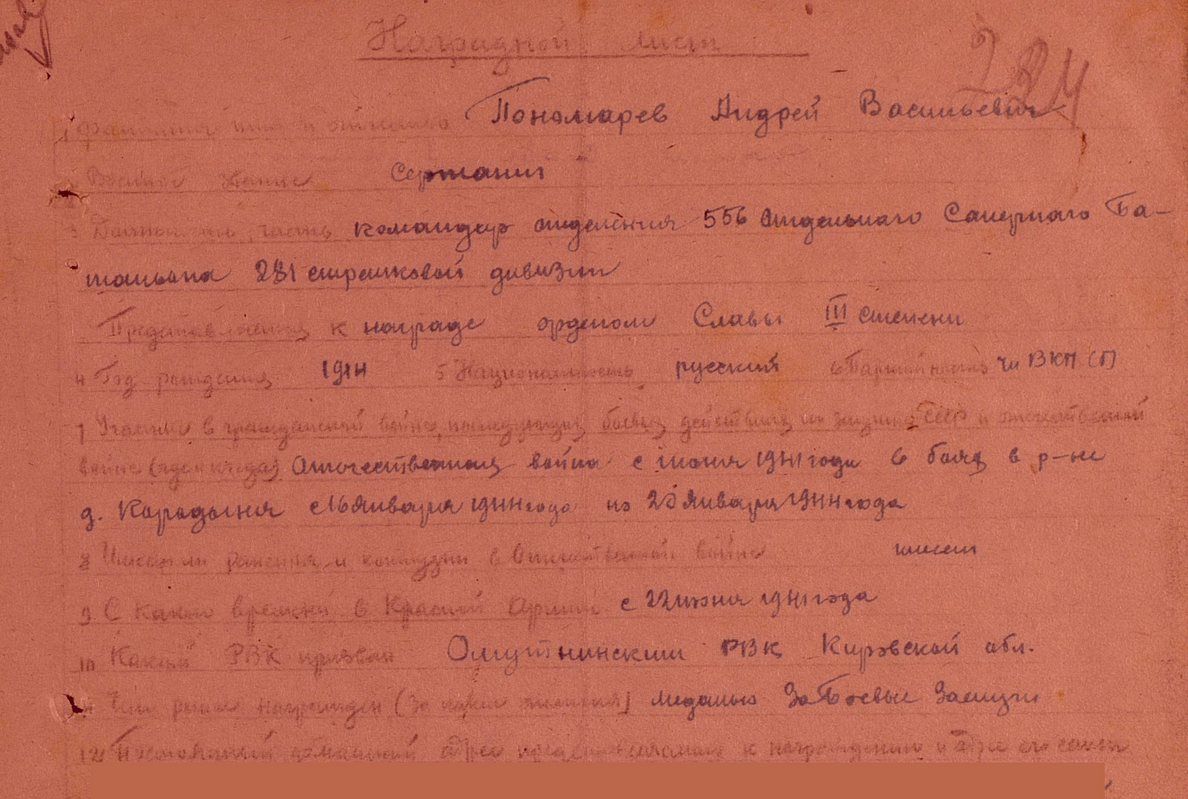 Наградной лист
284
1 Фамилия имя и отчество Пономарев Андрей Васильевич
2 Военное звание Сержант
3 Должность, часть командир отделения 556 отдельного Саперного Ба-
тальона 281 стрелковой дивизии
Представляется к награде орденом Славы III степени
4 Год рождения 1914 5 Национальность русский 6 Партийность чл ВКП(б)
7 Участие в гражданской войне, последующих боевых действиях по защите СССР и отечественной
войне (где и когда) Отечественная война с июня 1941 года в боях в р-не
д. Карадыня с 16 Января 1944 года по 20 Января 1944 года
8 Имеет ли ранения и контузии в Отечественной войне имеет
9 С какого времени в Красной Армии с 22 июня 1941 года
10 Каким РВК призван Омутнинским РВК Кировской обл.
11 Чем ранее награжден (за какие отличия) медалью За Боевые Заслуги
12 Постоянный домашний адрес представляемого к награждению и адрес его семьи